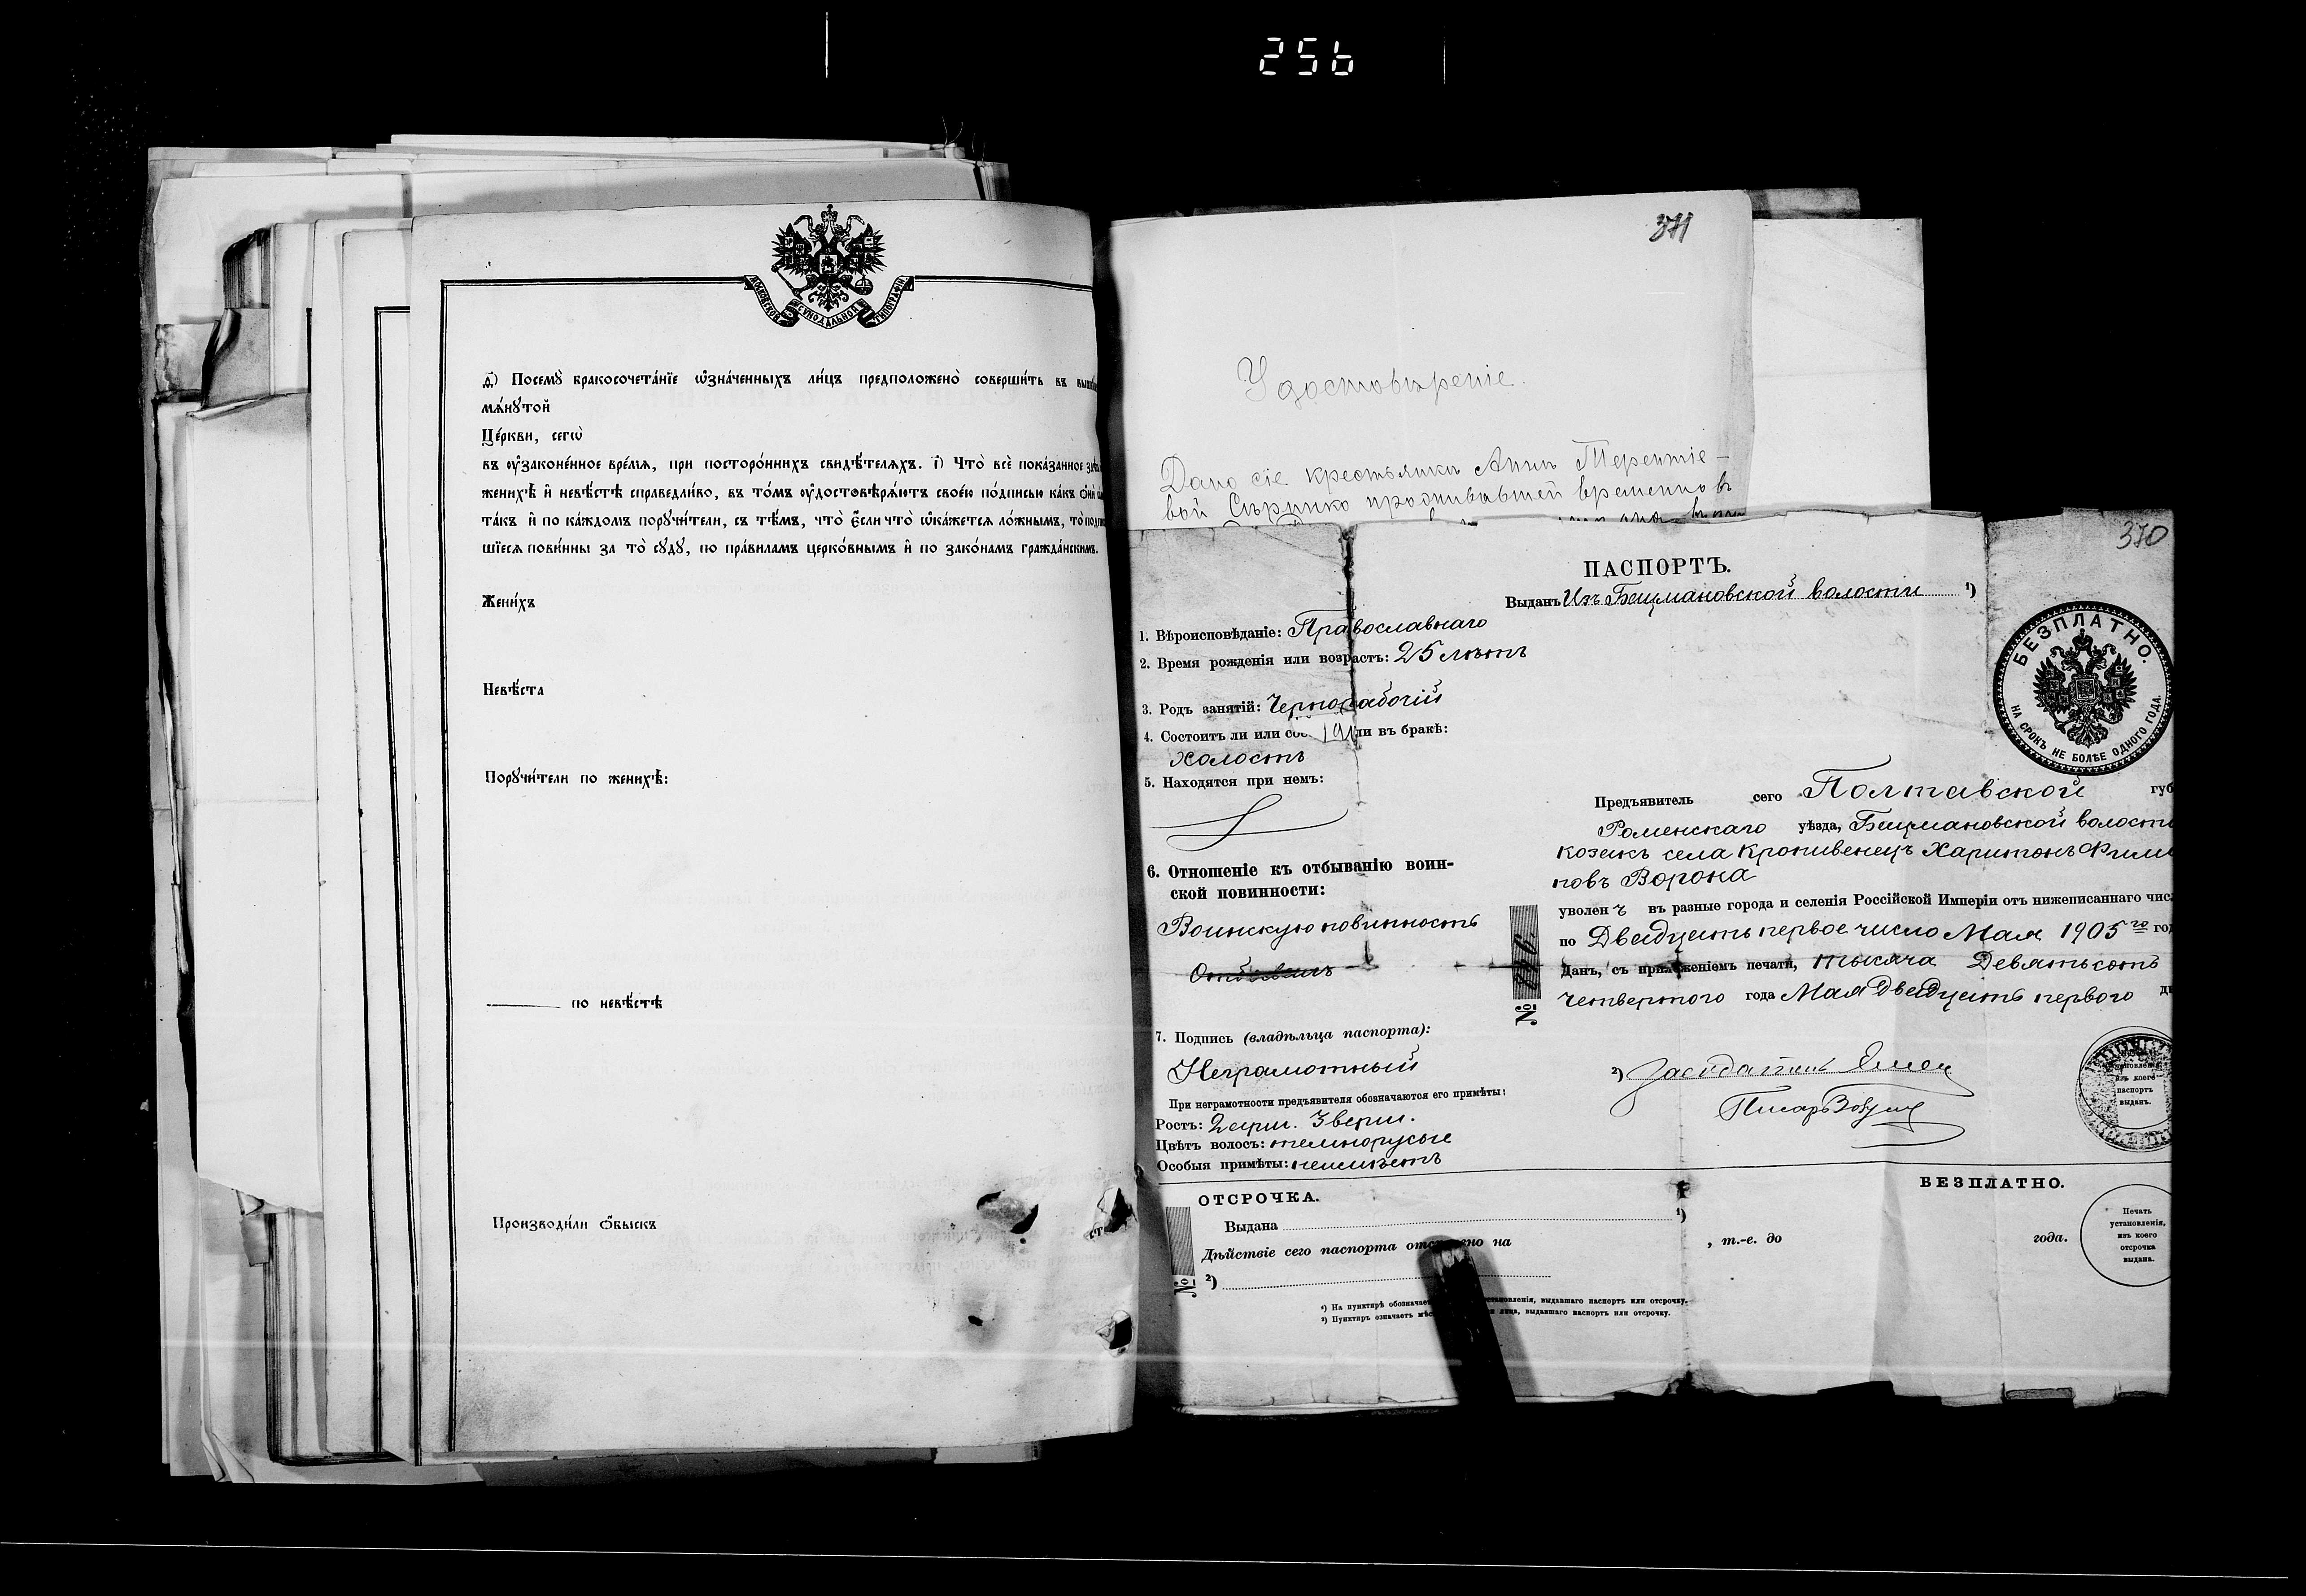 256
МОСКОВСКОЙ СѴНОДАЛЬНОЙ ТИПОГРАФІИ
д҃) Посемꙋ̀ бракосочета́нїе ѡ҆зна́ченныхъ ли́цъ предположено̀ соверши́ть въ
мѧ́нꙋтой
Це́ркви, сегѡ̀
въ ᲂу҆законе́нное вре́мѧ, при посторо́ннихъ свидѣ́телѧхъ. і҃) Что̀ всѐ пока́занное
женихѣ̀ и҆ невѣ́стѣ справедли́во, въ то́мъ ᲂу҆достовѣрѧ́ютъ свое́ю по́дписью ка́къ ѻ҆нѝ
та́къ и҆ по ка́ждомъ порꙋчи́тели, съ тѣ́мъ, что̀ є҆́сли что̀ ѡ҆ка́жетсѧ ло́жнымъ, то̀
шїесѧ пови́нны за то̀ сꙋдꙋ, по пра́виламъ церко́внымъ и҆ по зако́намъ гражда́нскимъ.
Жени́хъ
Невѣ́ста
Порꙋчи́тели по женихѣ̀:
по невѣ́стѣ
Производи́ли ѻ҆́быскъ
371
Удостовѣреніе.
Дано сіе крестьянкѣ Аннѣ Терентіе-
вой проживавшей временно въ
370
ПАСПОРТЪ.
Выданъ Изъ Бацмановской волости ¹)
БЕЗПЛАТНО.
НА СРОКЪ НЕ БОЛѢЕ ОДНОГО ГОДА.
1. Вѣроисповѣданіе: Православнаго
2. Время рожденія или возрастъ: 25 лѣтъ
3. Родъ занятій: Чернорабочій
4. Состоитъ ли или ли въ бракѣ:
Холостъ
5. Находятся при немъ:
6. Отношеніе къ отбыванію воин-
ской повинности:
Воинскую повинность
7. Подпись (владѣльца паспорта):
Неграмотный
При неграмотности предъявителя обозначаются его примѣты:
Ростъ: 2 арш. 3 верш.
Цвѣтъ волосъ: темнорусые
Особыя примѣты: неимѣетъ
Предъявитель сего Полтавской губ
Роменскаго уѣзда, Бацмановской волости
козакъ села Кропивенецъ Харитонъ Фили
повъ Ворона
уволенъ въ разные города и селенія Россійской Имперіи отъ нижеписаннаго
по Двадцать первое число Мая 1905 го
Данъ, съ приложеніемъ печати, тысяча Девятьсотъ
четвертого года Мая Двадцать первого
№ 826.
²)
Писарь
паспортъ
выданъ.
ОТСРОЧКА.
БЕЗПЛАТНО.
Выдана ¹)
Дѣйствіе сего паспорта на , т.-е. до года.
№ ²)
Печать
установленія,
изъ коего
отсрочка
выдана.
¹) На пунктирѣ установленія, выдавшаго паспортъ или отсрочку.
²) Пунктиръ означаетъ лица, выдавшаго паспортъ или отсрочку.